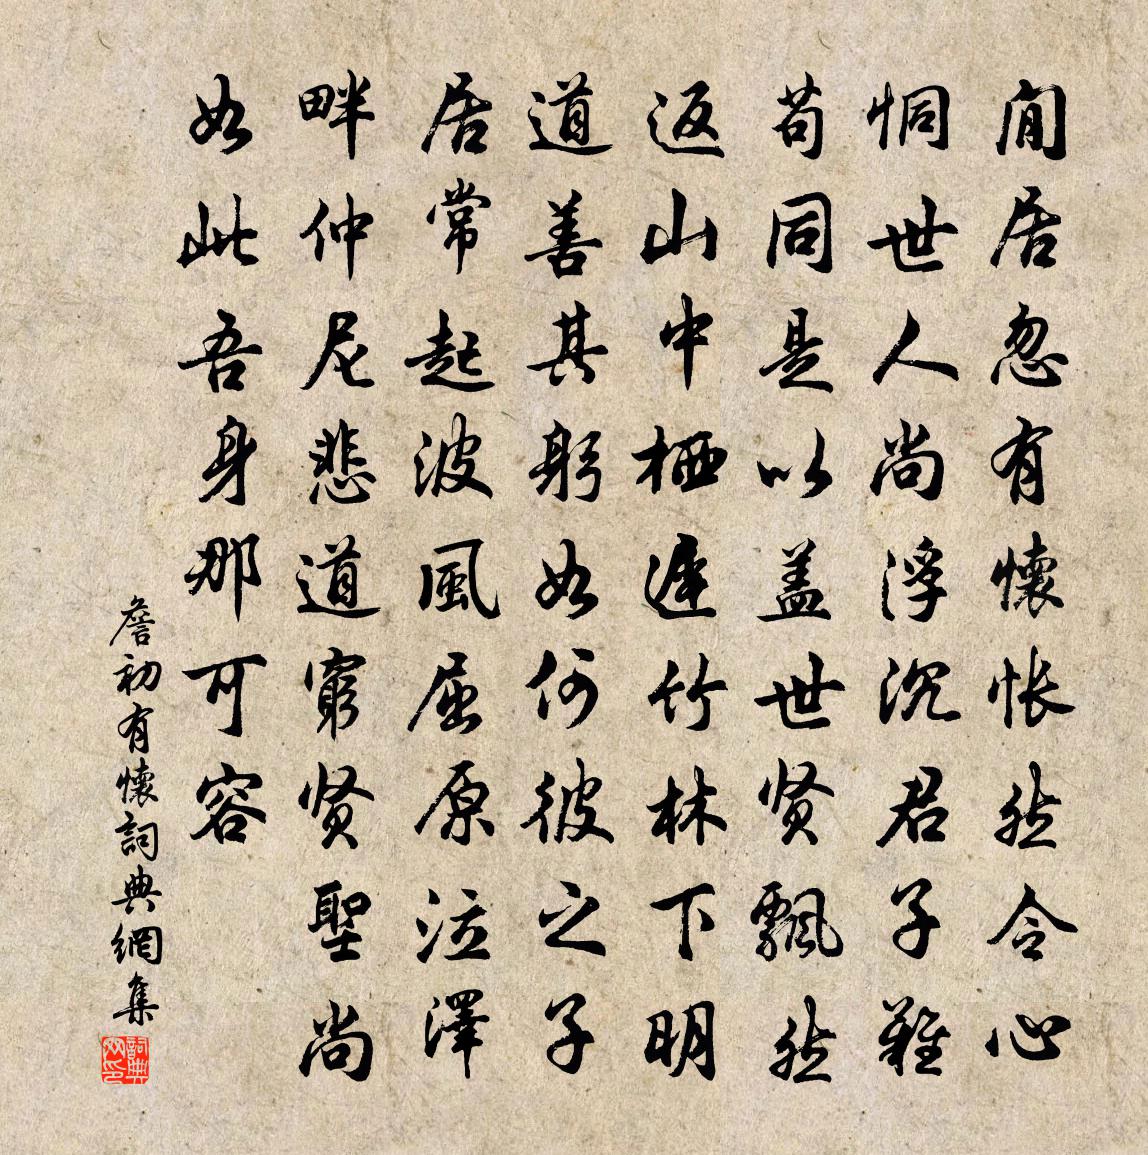 閒居忽有懷悵然令心
恫世人尚浮沉君子難
苟同是以盖世贤飄然
返山中栖遲竹林下明
道善其躬如何彼之子
居常起波風屈原泣澤
畔仲尼悲道窮贤聖尚
如此吾身那可容
詹初有懷詞典網集
詞典网印